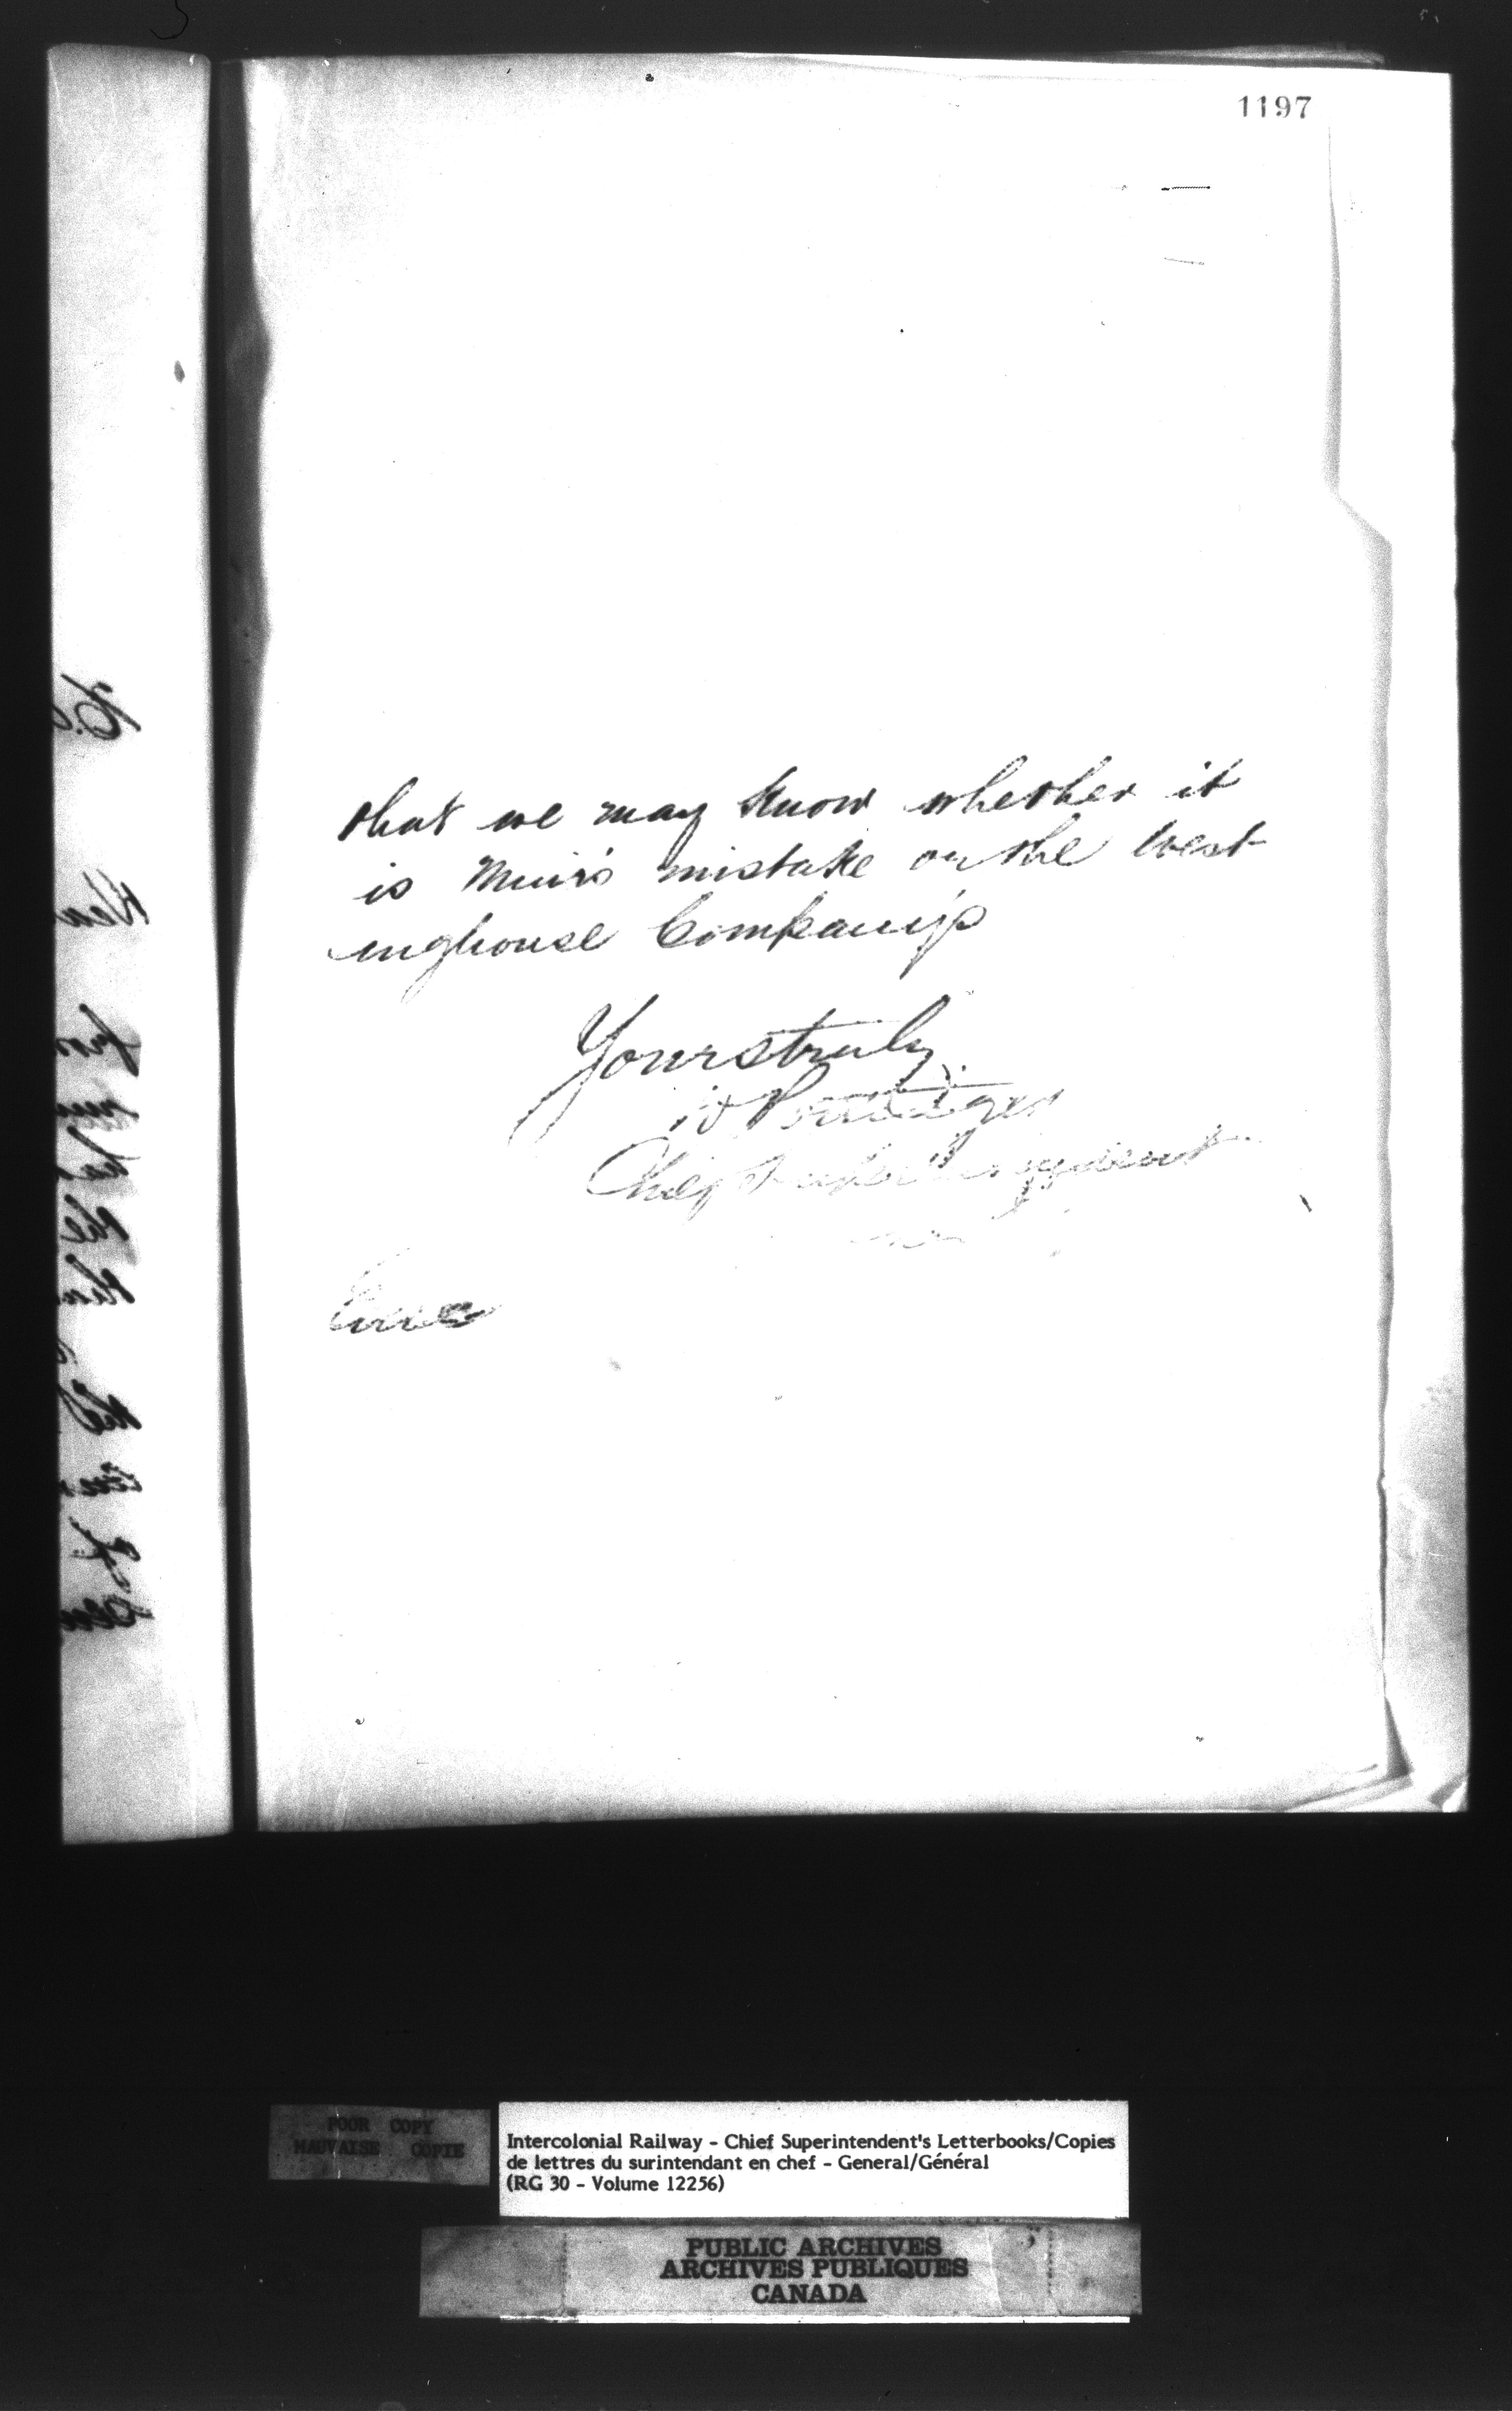 1197
that we may know whether it
is Muir's mistake or the West
inghouse Company's
Yours truly
D Pottinger
Chief Superintendent
Encs
POOR COPY
MAUVAISE COPIE
Intercolonial Railway - Chief Superintendent's Letterbooks/Copies
de lettres du surintendant en chef - General/Général
(RG 30 - Volume 12256)
PUBLIC ARCHIVES
ARCHIVES PUBLIQUES
CANADA